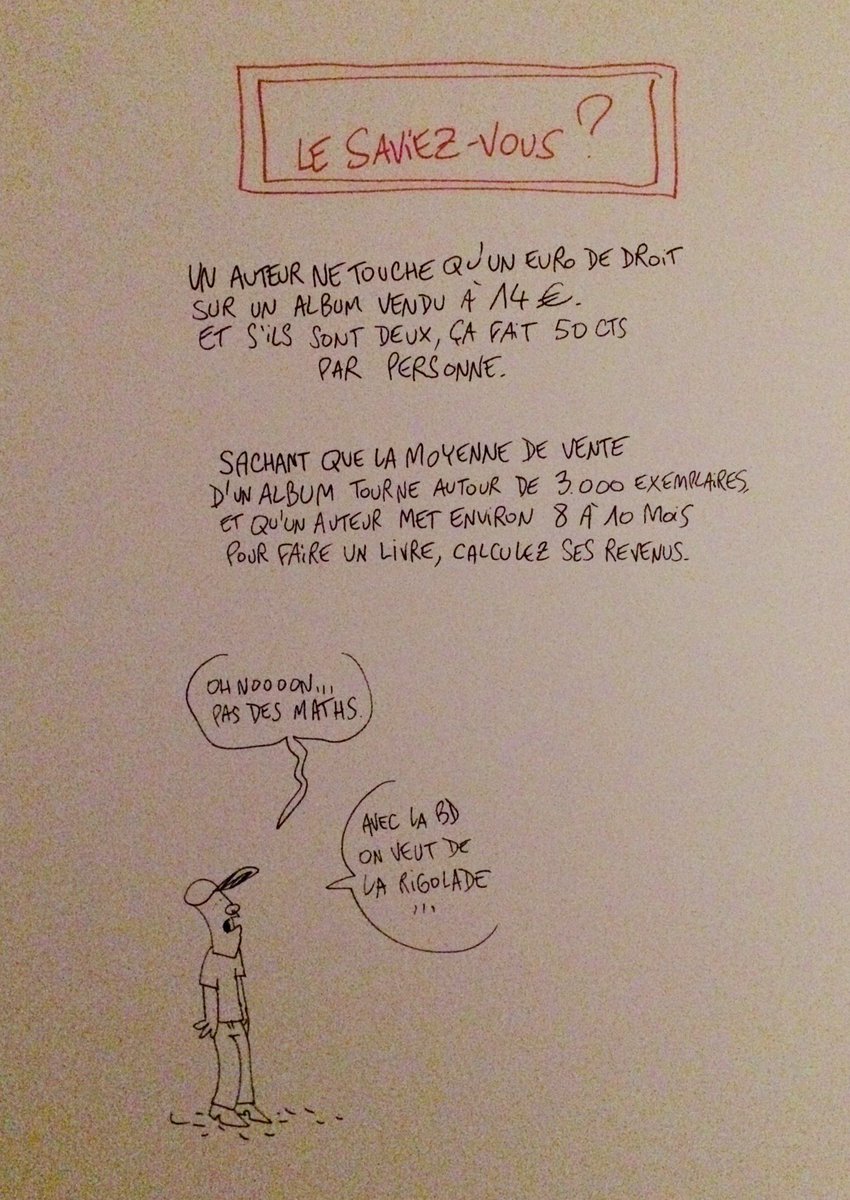 LE SAVIEZ-VOUS ?
UN AUTEUR NE TOUCHE QU'UN EURO DE DROIT
SUR UN ALBUM VENDU À 14 €.
ET S'ILS SONT DEUX, ÇA FAIT 50 CTS
PAR PERSONNE.
SACHANT QUE LA MOYENNE DE VENTE
D'UN ALBUM TOURNE AUTOUR DE 3.000 EXEMPLAIRES,
ET QU'UN AUTEUR MET ENVIRON 8 À 10 MOIS
POUR FAIRE UN LIVRE, CALCULEZ SES REVENUS.
OH NOOOON...
PAS DES MATHS.
AVEC LA BD
ON VEUT DE
LA RIGOLADE
...